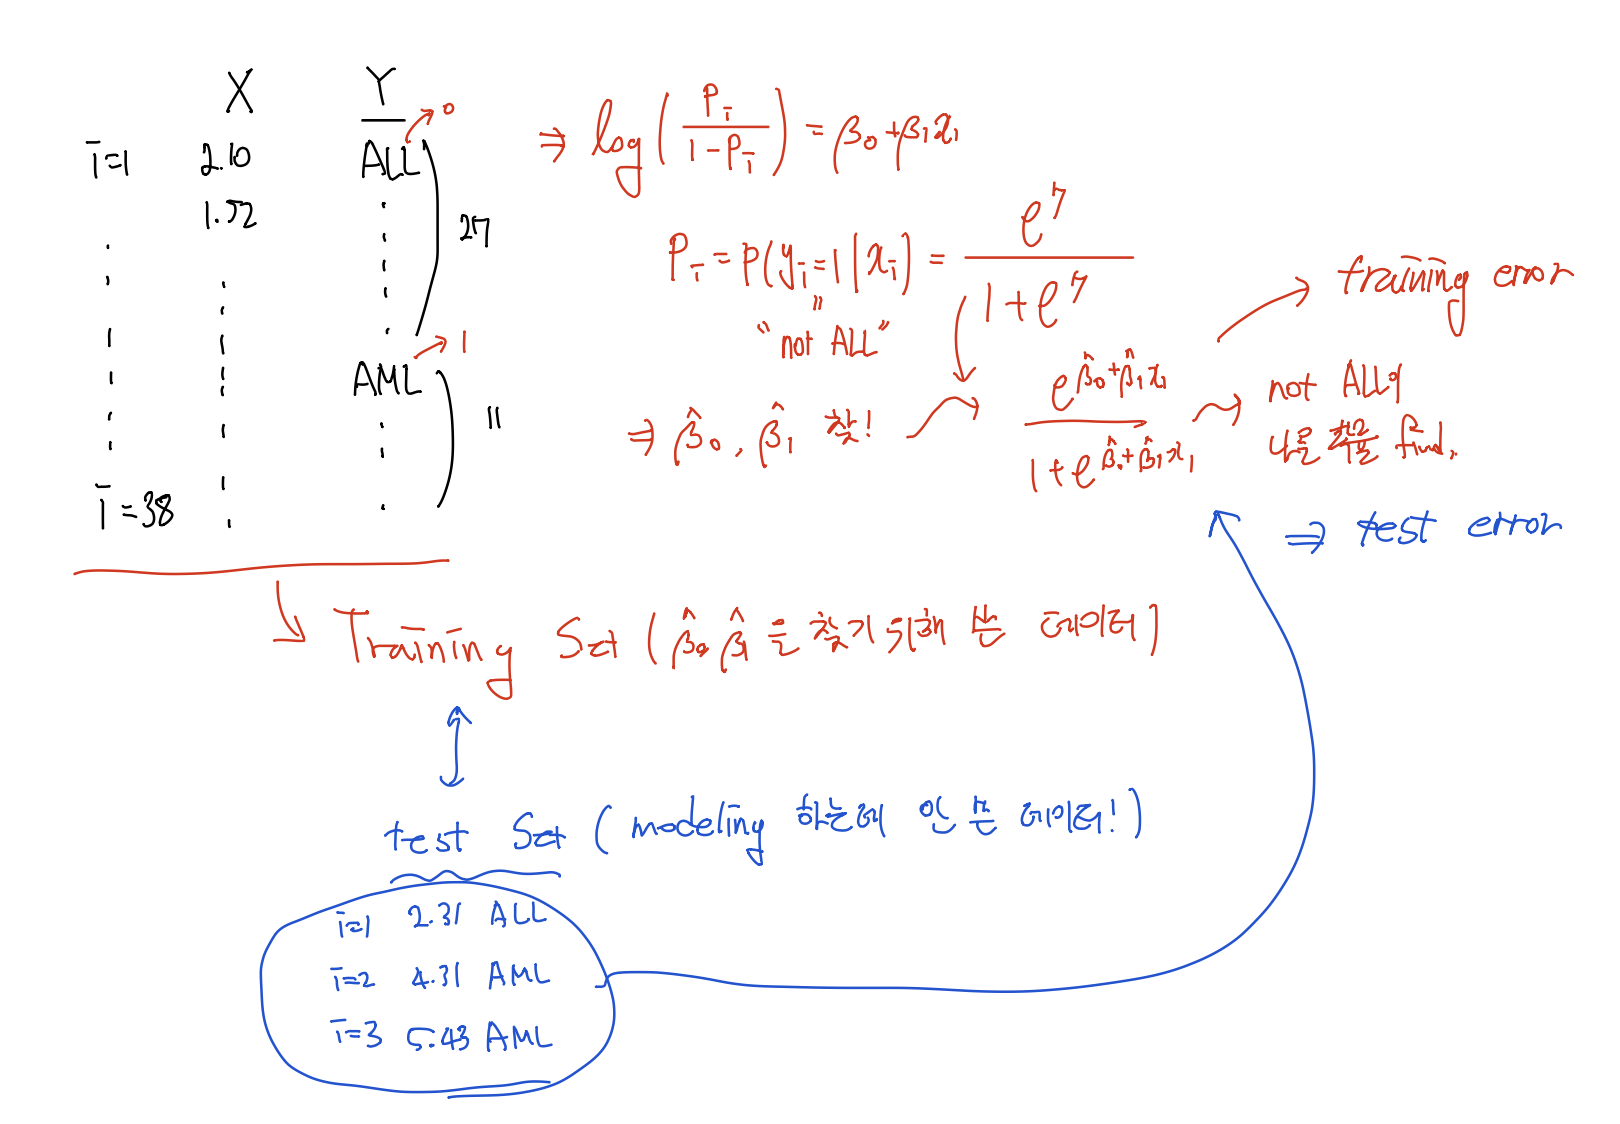 X Y
i=1 2.10 ALL → 0
1.52
27
AML → 1
11
i=38
⇒ log(Pi/(1-Pi)) = β0+β1xi
Pi = P(yi=1|xi) = e^7/(1+e^7)
"not ALL"
⇒ β̂0, β̂1 찾!
e^(β̂0+β̂1xi)/(1+e^(β̂0+β̂1xi))
training error
not ALL이
나올 확률을 find.
⇒ test error
Training Set (β̂0, β̂1 을 찾기 위해 쓴 데이터)
test Set (modeling 하는데 안 쓴 데이터!)
i=1 2.31 ALL
i=2 4.31 AML
i=3 5.43 AML